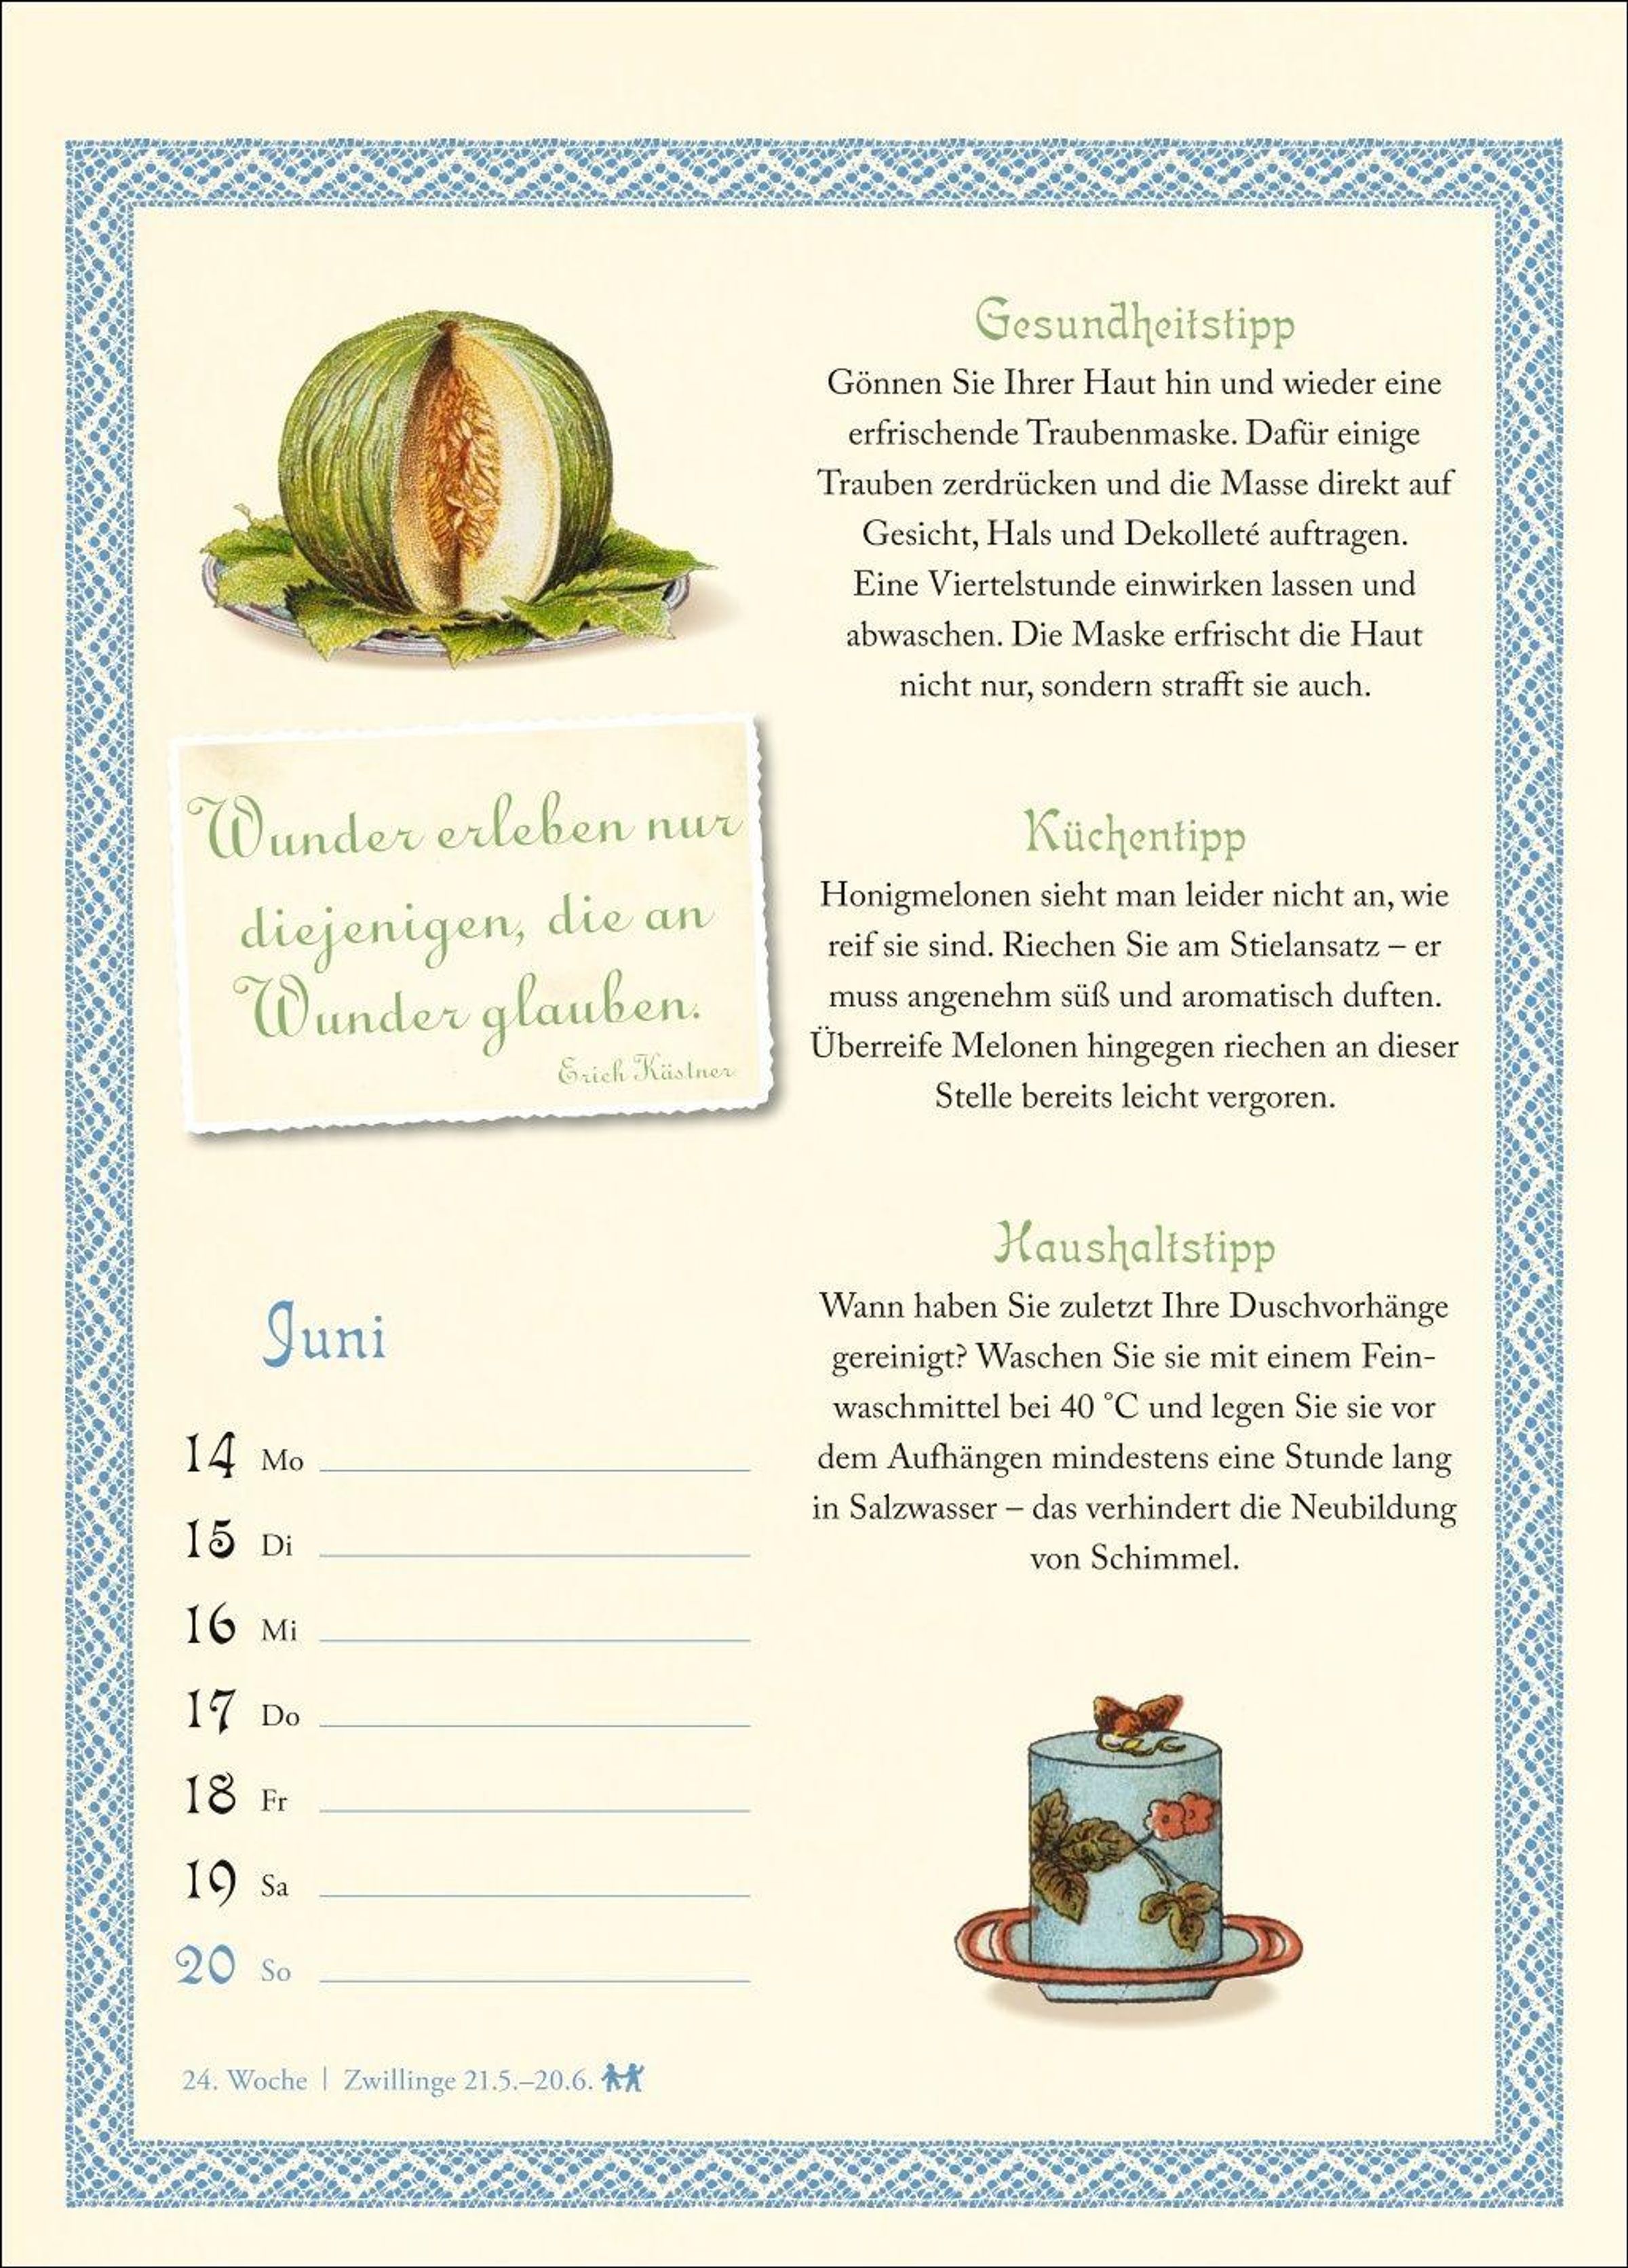 Gesundheitstipp
Gönnen Sie Ihrer Haut hin und wieder eine
erfrischende Traubenmaske. Dafür einige
Trauben zerdrücken und die Masse direkt auf
Gesicht, Hals und Dekolleté auftragen.
Eine Viertelstunde einwirken lassen und
abwaschen. Die Maske erfrischt die Haut
nicht nur, sondern strafft sie auch.
Wunder erleben nur
diejenigen, die an
Wunder glauben.
Erich Kästner
Küchentipp
Honigmelonen sieht man leider nicht an, wie
reif sie sind. Riechen Sie am Stielansatz – er
muss angenehm süß und aromatisch duften.
Überreife Melonen hingegen riechen an dieser
Stelle bereits leicht vergoren.
Haushaltstipp
Wann haben Sie zuletzt Ihre Duschvorhänge
gereinigt? Waschen Sie sie mit einem Fein-
waschmittel bei 40 °C und legen Sie sie vor
dem Aufhängen mindestens eine Stunde lang
in Salzwasser – das verhindert die Neubildung
von Schimmel.
Juni
14 Mo
15 Di
16 Mi
17 Do
18 Fr
19 Sa
20 So
24. Woche | Zwillinge 21.5.–20.6.